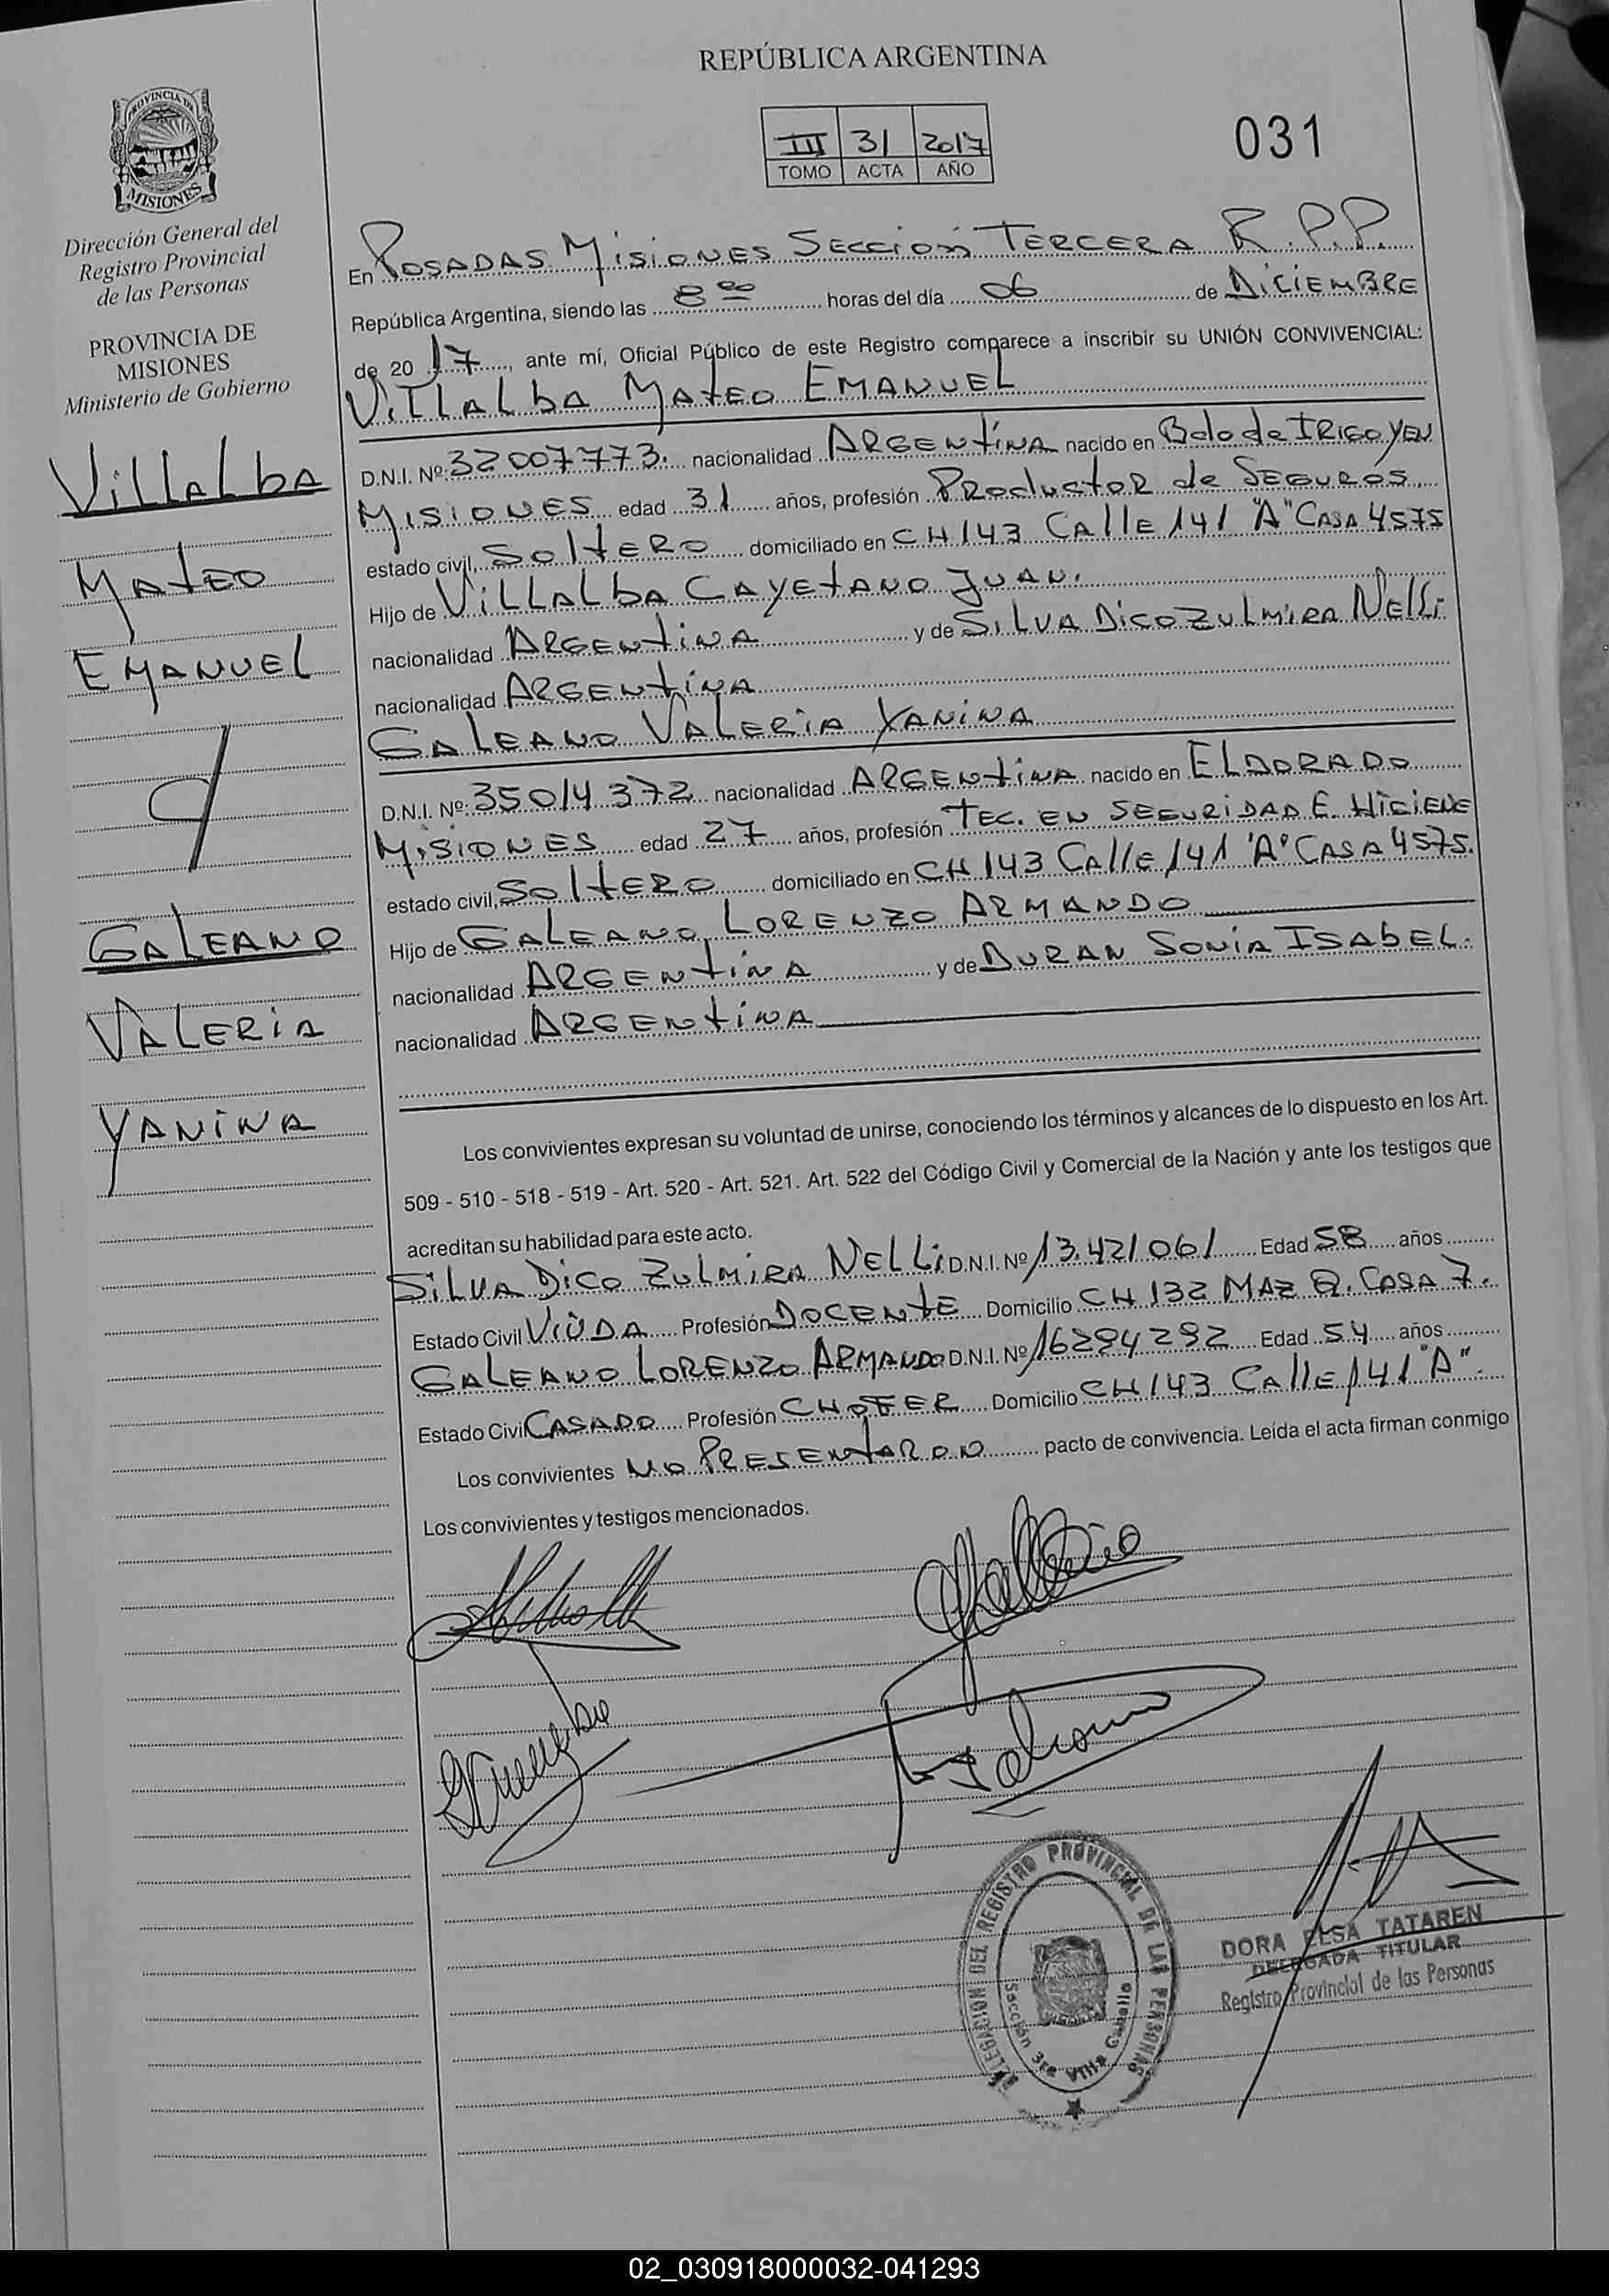 REPÚBLICA ARGENTINA
III 31 2017
TOMO ACTA AÑO
031
PROVINCIA DE
MISIONES
Dirección General del
Registro Provincial
de las Personas
PROVINCIA DE
MISIONES
Ministerio de Gobierno
Villalba
Mateo
Emanuel
y
Galeano
Valeria
Yanina
En Posadas Misiones Sección Tercera R.P.P.
República Argentina, siendo las 8 00 horas del día 06 de Diciembre
de 20 17, ante mí, Oficial Público de este Registro comparece a inscribir su UNIÓN CONVIVENCIAL:
Villalba Mateo Emanuel
D.N.I. Nº 32007773. nacionalidad Argentina nacido en Bdo de Irigoyen
Misiones edad 31 años, profesión Productor de Seguros
estado civil, Soltero domiciliado en CH 143 Calle 141 "A" Casa 4575
Hijo de Villalba Cayetano Juan.
nacionalidad Argentina y de Silva Dico Zulmira Nelli
nacionalidad Argentina
Galeano Valeria Yanina
D.N.I. Nº 35014372 nacionalidad Argentina nacido en Eldorado
Misiones edad 27 años, profesión Tec. en Seguridad E. Higiene
estado civil, Soltero domiciliado en CH 143 Calle 141 "A" Casa 4575.
Hijo de Galeano Lorenzo Armando
nacionalidad Argentina y de Duran Sonia Isabel.
nacionalidad Argentina
Los convivientes expresan su voluntad de unirse, conociendo los términos y alcances de lo dispuesto en los Art.
509 - 510 - 518 - 519 - Art. 520 - Art. 521. Art. 522 del Código Civil y Comercial de la Nación y ante los testigos que
acreditan su habilidad para este acto.
Silva Dico Zulmira Nelli D.N.I. Nº 13.421061 Edad 58 años
Estado Civil Viuda Profesión Docente Domicilio CH 132 Maz Q. Casa 7.
Galeano Lorenzo Armando D.N.I. Nº 16294292 Edad 54 años
Estado Civil Casado Profesión Chofer Domicilio CH 143 Calle 141 "A".
Los convivientes no presentaron pacto de convivencia. Leída el acta firman conmigo
Los convivientes y testigos mencionados.
DELEGACION DEL REGISTRO PROVINCIAL DE LAS PERSONAS
Sección 3ra Villa Cabello
DORA ELSA TATAREN
DELEGADA TITULAR
Registro Provincial de las Personas
02_030918000032-041293